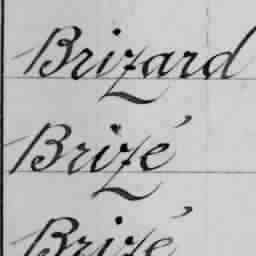 Brizard
Brizé
Brizé